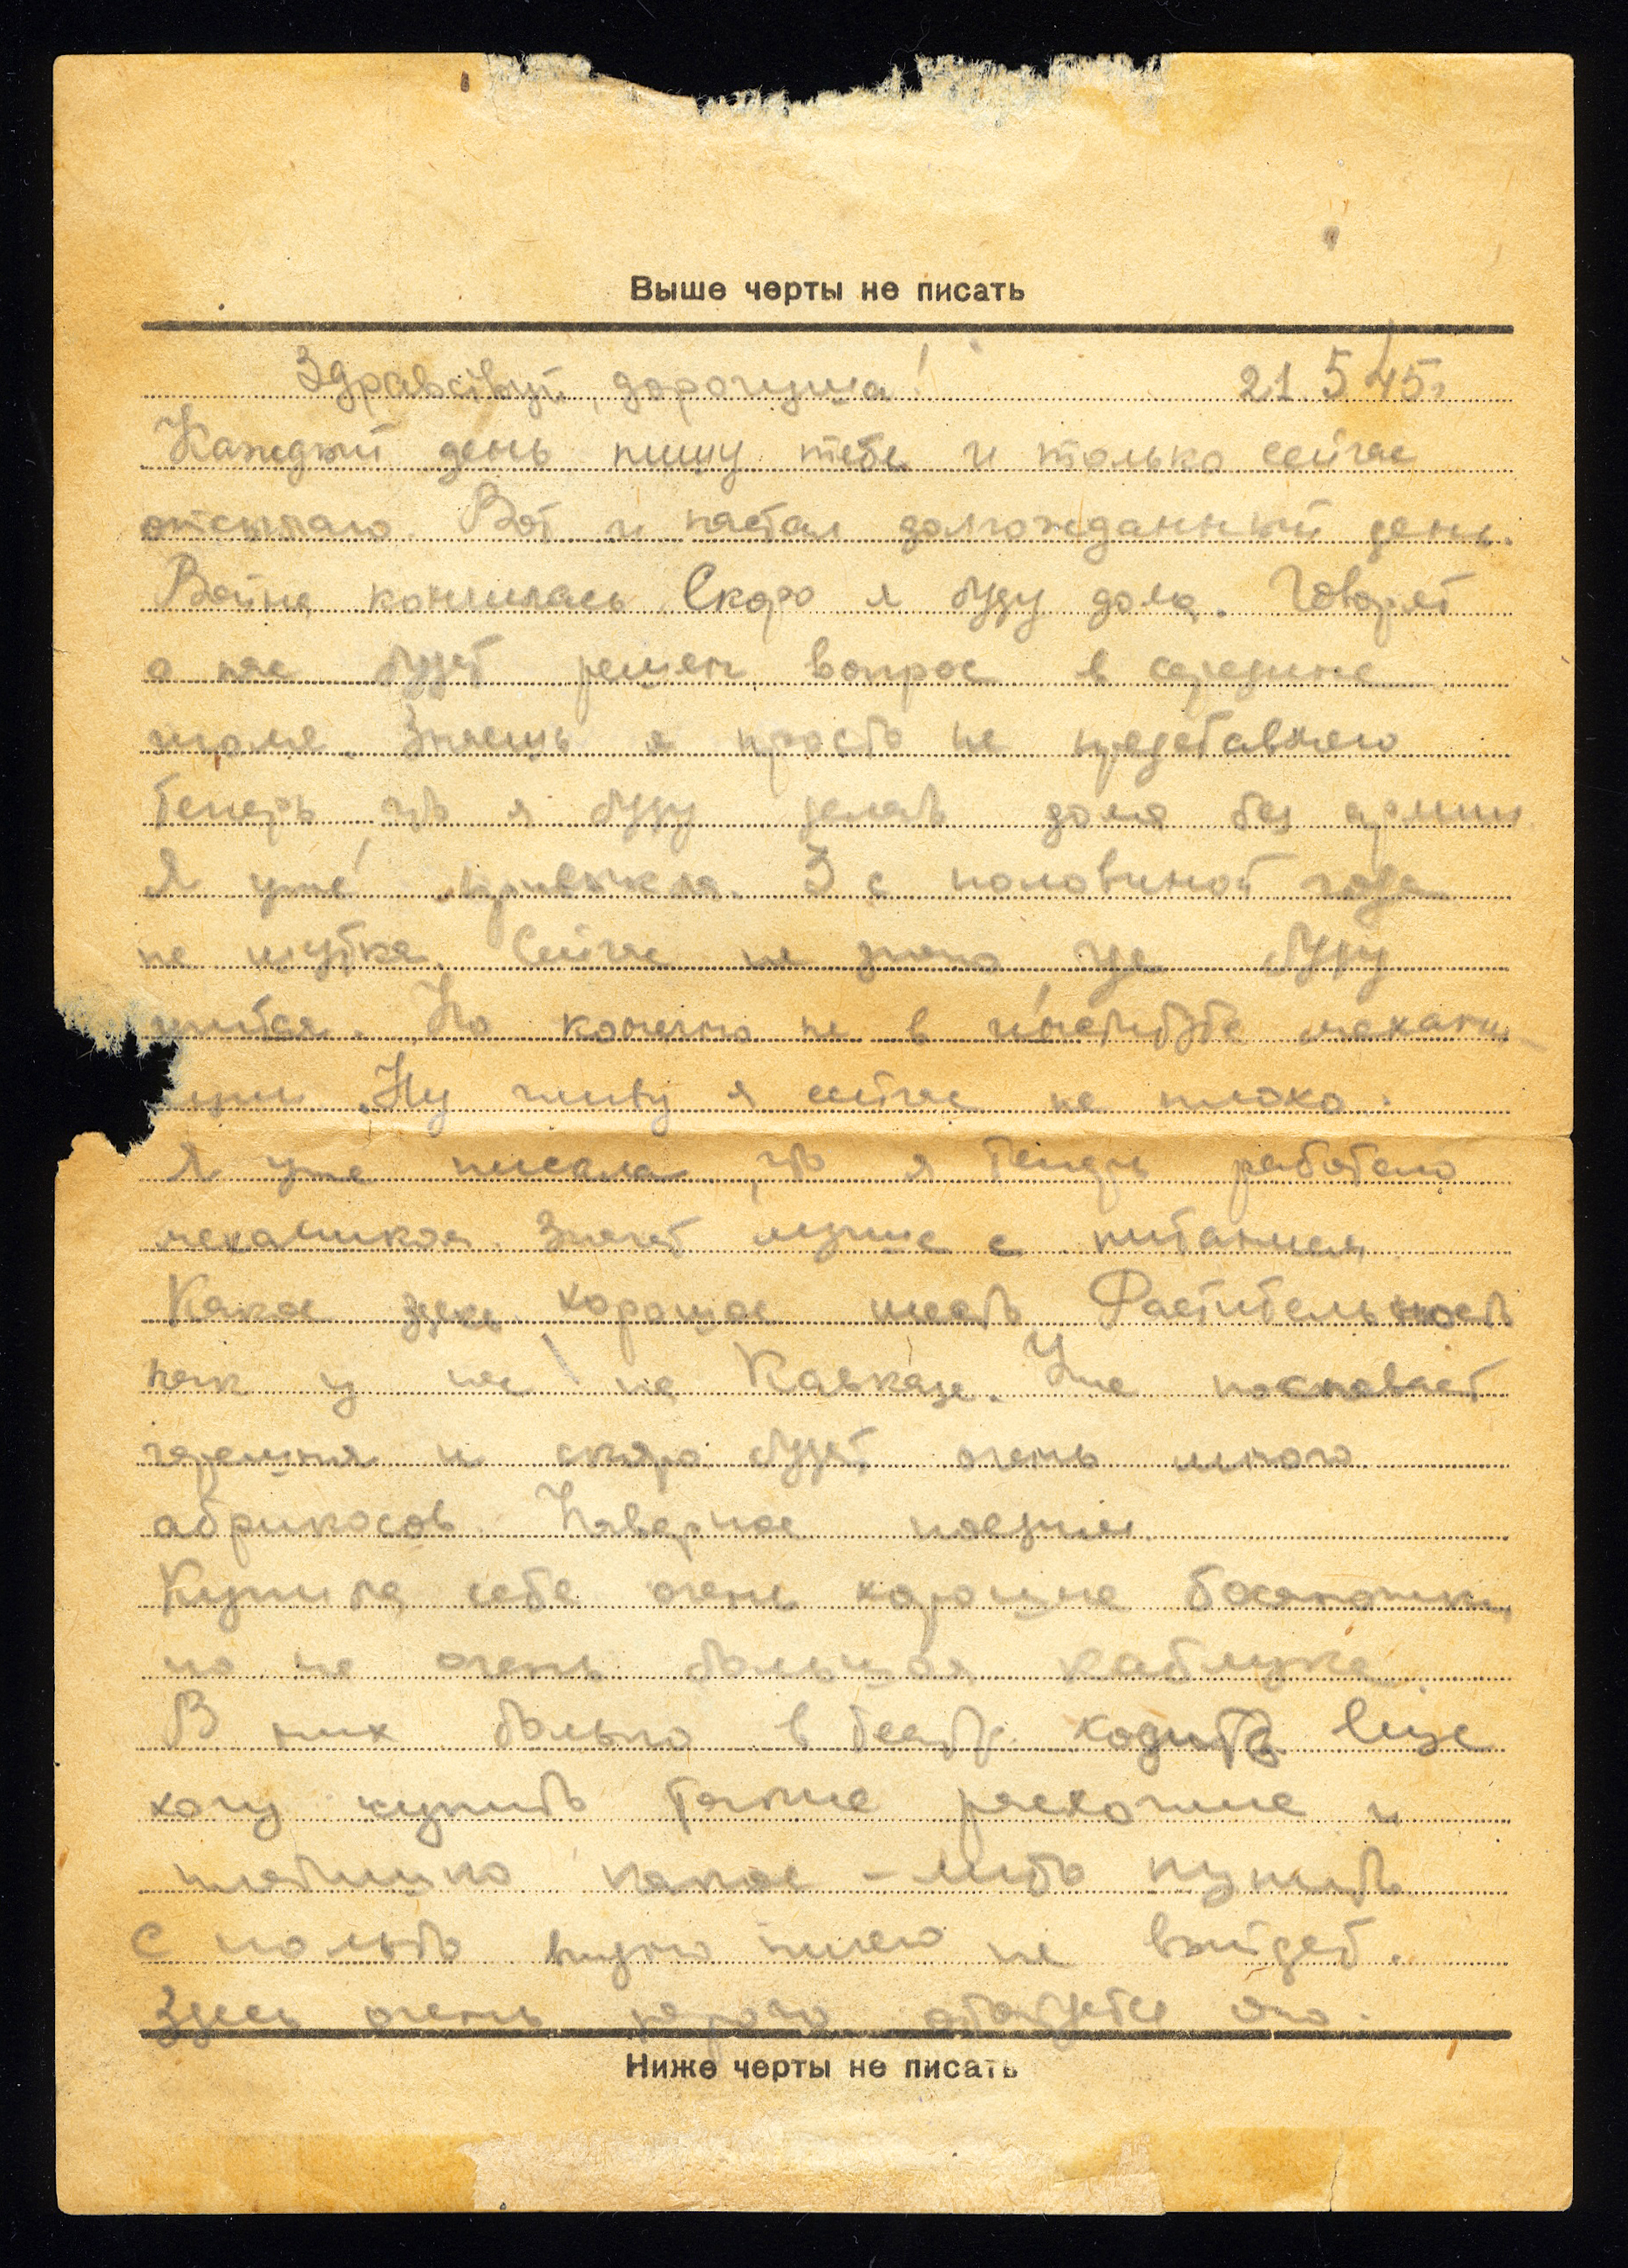 Выше черты не писать
Здравствуй, дорогуша! 21.5.45г
Каждый день пишу тебе и только сейчас
отсылаю. Вот и настал долгожданный день.
Война кончилась. Скоро я буду дома. Говорят
о нас будет решен вопрос в середине
июля. Знаешь я просто не представляю
теперь, что я буду делать дома без армии
Я уже привыкла. 3 с половиной года
не шутка. Сейчас не знаю где буду
учиться. Но конечно не в институте механи-
Ну живу я сейчас не плохо.
Я уже писала, что я теперь работаю
механиком. Значит лучше с питанием.
Какое здесь хорошее место. Растительность
как у нас на Кавказе. Уже поспевает
черешня и скоро будет очень много
абрикосов. Наверное поедим.
Купила себе очень хорошие босоножки,
но на очень большом каблуке
В них только в театр ходить Еще
хочу купить такие рабочие и
платьишко какое-либо купить
С пальто видно ничего не выйдет.
Здесь очень дорого обойдется оно.
Ниже черты не писать